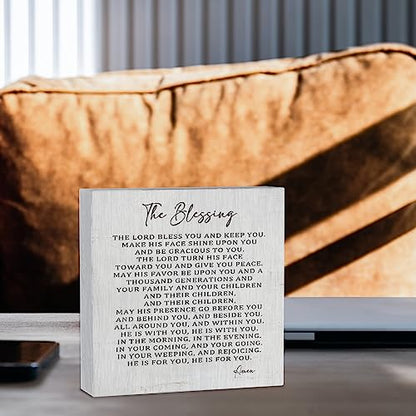 The Blessing
THE LORD BLESS YOU AND KEEP YOU.
MAKE HIS FACE SHINE UPON YOU
AND BE GRACIOUS TO YOU.
THE LORD TURN HIS FACE
TOWARD YOU AND GIVE YOU PEACE.
MAY HIS FAVOR BE UPON YOU AND A
THOUSAND GENERATIONS AND
YOUR FAMILY AND YOUR CHILDREN
AND THEIR CHILDREN,
AND THEIR CHILDREN,
MAY HIS PRESENCE GO BEFORE YOU
AND BEHIND YOU, AND BESIDE YOU.
ALL AROUND YOU, AND WITHIN YOU.
HE IS WITH YOU, HE IS WITH YOU.
IN THE MORNING, IN THE EVENING.
IN YOUR COMING, AND YOUR GOING.
IN YOUR WEEPING, AND REJOICING.
HE IS FOR YOU, HE IS FOR YOU.
Amen